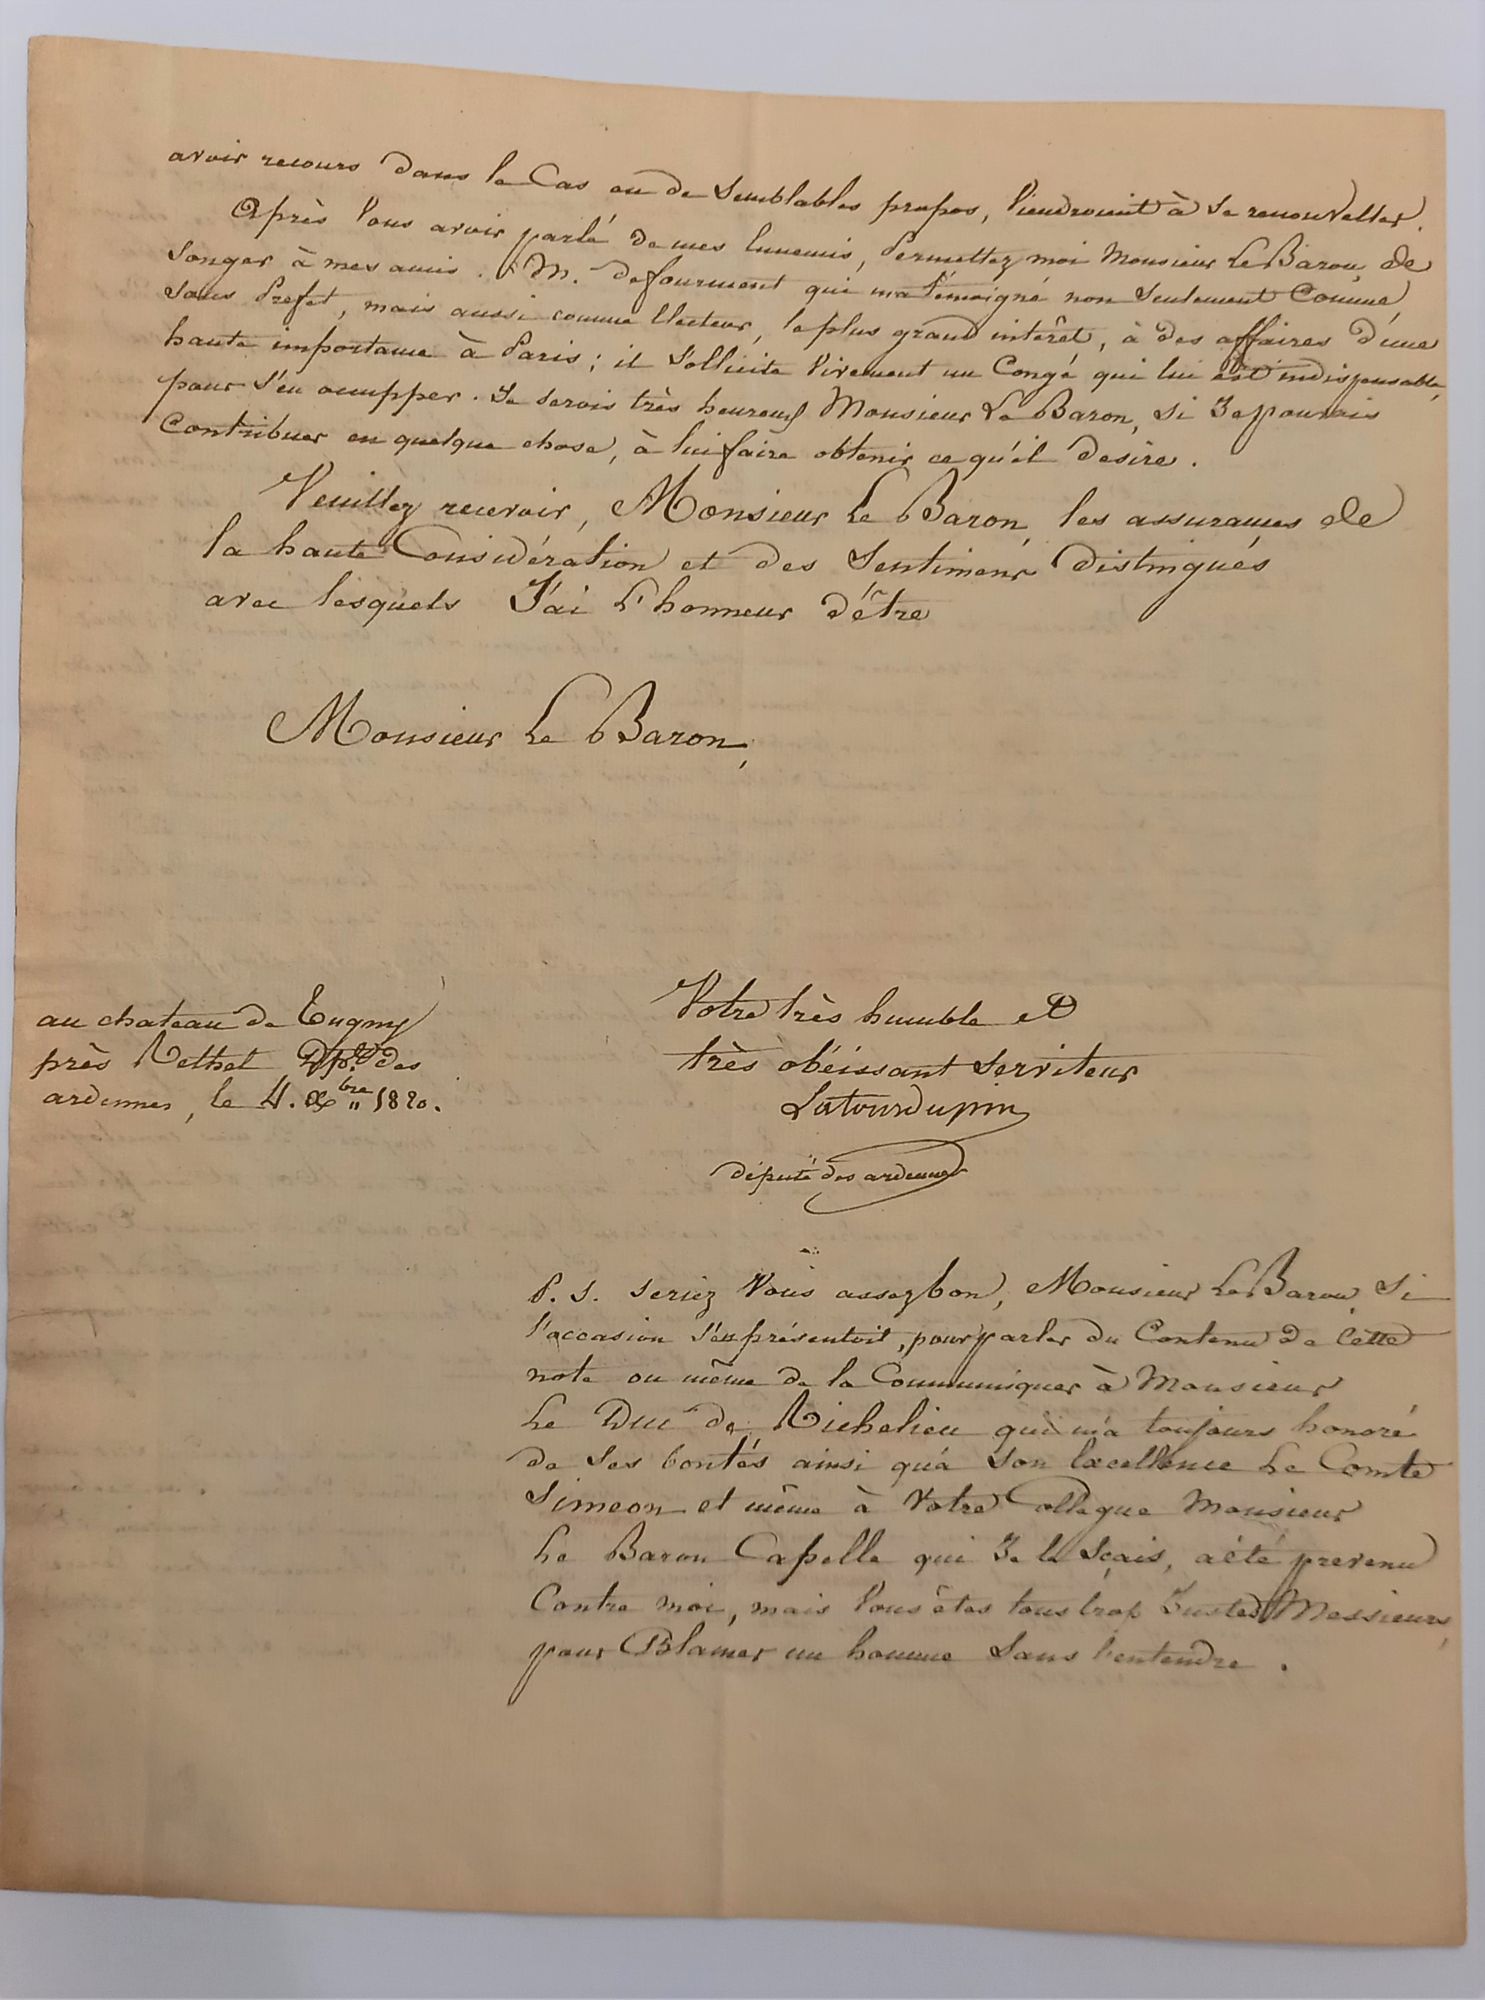 avoir recours dans le Cas ou de Semblables propos, viendroient à se renouveller.
Après vous avoir parlé de mes Ennemis, Permettez moi Monsieur Le Baron, de
Songer à mes amis. M. defourment qui m'a témoigné non Seulement Comme
Sous Prefet, mais aussi comme Electeur, le plus grand intérêt, à des affaires d'une
haute importance à Paris; il Sollicite Vivement un Congé qui lui est indispensable,
pour S'en occupper. Je serois très heureux Monsieur Le Baron, si Je pouvais
Contribuer en quelque chose, à lui faire obtenir ce qu'il desire.
Veuillez recevoir, Monsieur Le Baron, les assurances de
la haute Considération et des Sentimens distingués
avec lesquels J'ai L'honneur d'être
Monsieur Le Baron,
Votre très humble et
très obéissant Serviteur
Latourdupin
député des ardennes
au chateau de Tugny
près Rethel Dpt. des
ardennes, le 4. Xbre 1820.
P. S. seriez Vous assez bon, Monsieur Le Baron, Si
l'occasion s'en présentoit, pour parler du Contenu de Cette
note ou même de la Communiquer à Monsieur
Le Duc de Richelieu qui m'a toujours honoré
de Ses bontés ainsi qu'à Son Excellence Le Comte
Simeon et même à Votre Collegue Monsieur
Le Baron Capelle qui Je le Sçais, a été prevenu
Contre moi, mais Vous êtes tous trop Justes Messieurs,
pour Blâmer un homme Sans l'entendre.